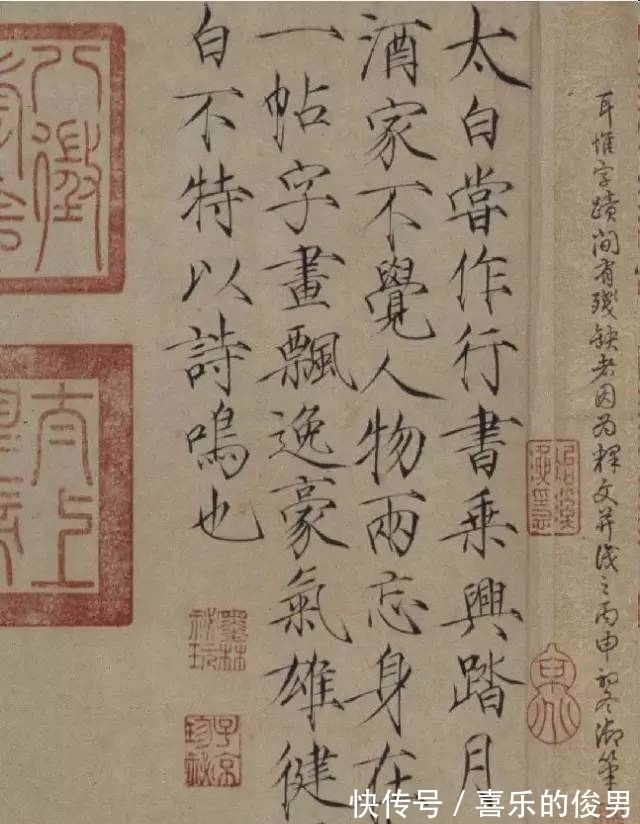 耳惟字蹟間有殘缺者因為釋文并識之丙申初冬御筆
太白嘗作行書乘興踏月
酒家不覺人物兩忘身在
一帖字畫飄逸豪氣雄健
白不特以詩鳴也
墨林
祕玩
子京
珍祕
八徵
太上
快传号 / 喜乐的俊男